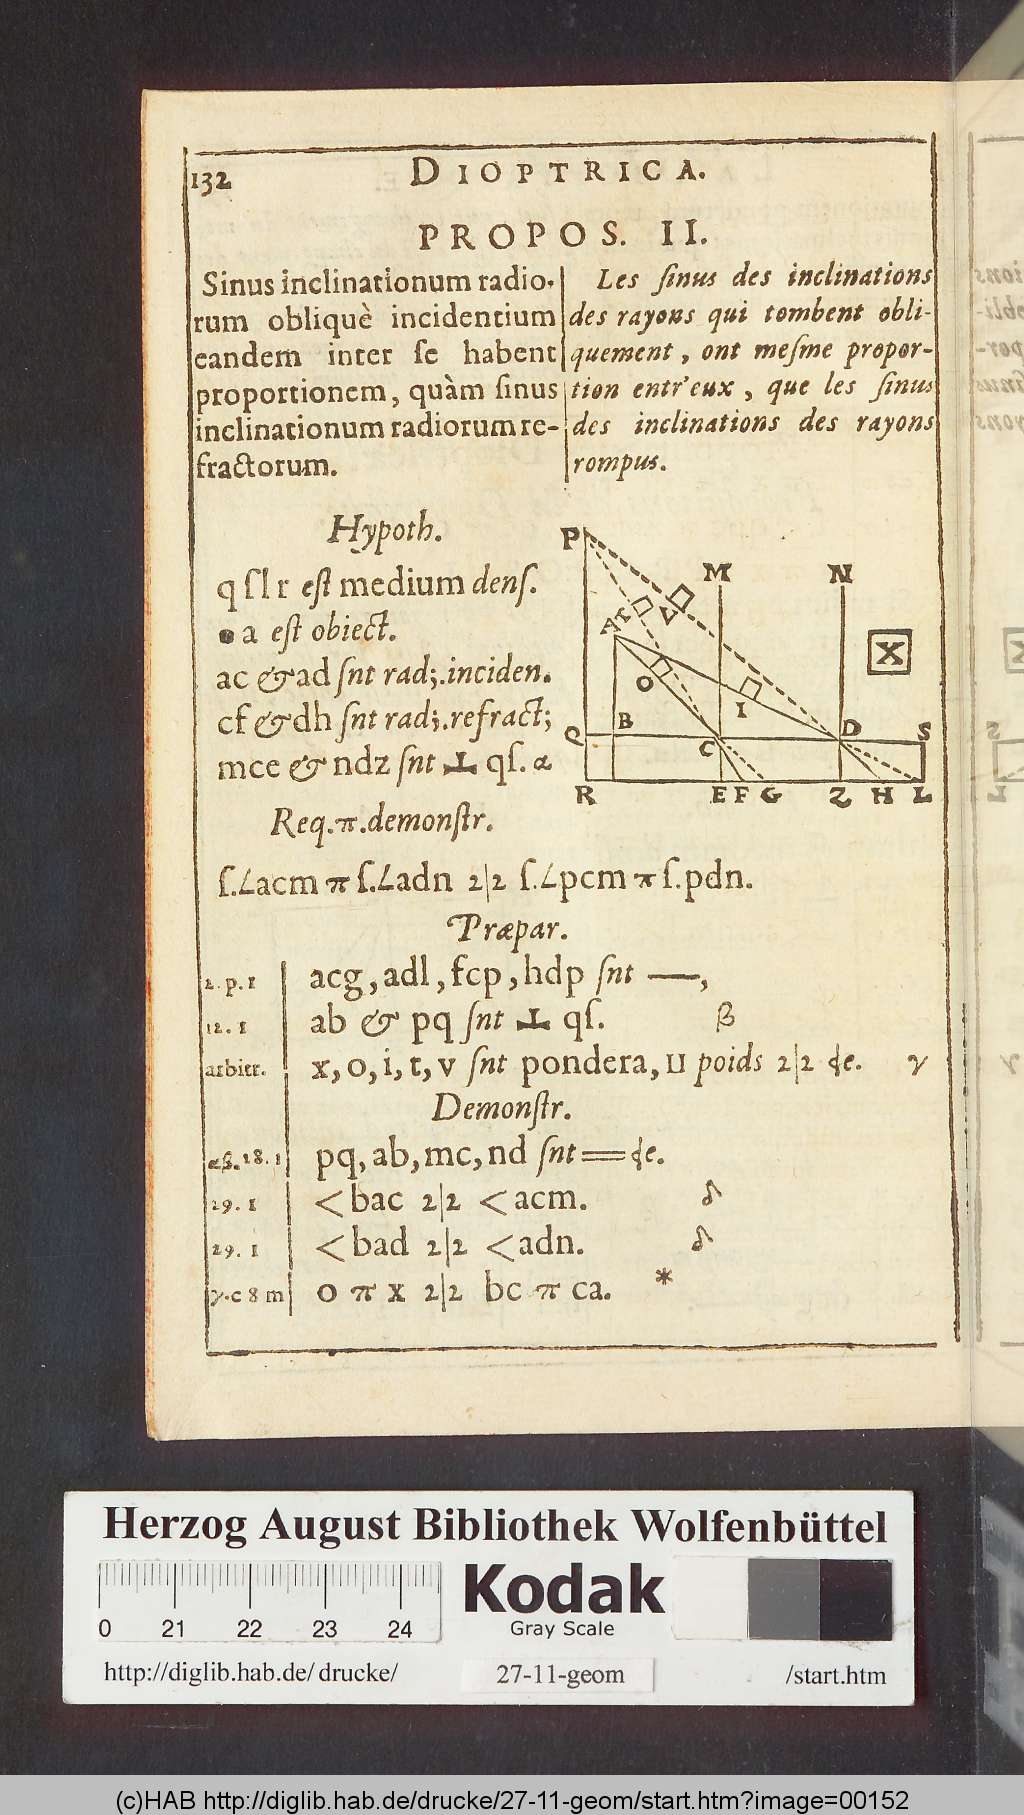 132
DIOPTRICA.
PROPOS. II.
Sinus inclinationum radio-
rum obliquè incidentium
eandem inter ſe habent
proportionem, quàm ſinus
inclinationum radiorum re-
fractorum.
Les ſinus des inclinations
des rayons qui tombent obli-
quement, ont meſme propor-
tion entr'eux, que les ſinus
des inclinations des rayons
rompus.
Hypoth.
qſlr eſt medium denſ.
a eſt obiect.
ac & ad ſnt rad;.inciden.
cf & dh ſnt rad;.refract;
mce & ndz ſnt ⊥ qſ. α
P
M
N
A
T
V
X
O
I
Q
B
C
D
S
R
E F G
Z H L
Req.π.demonſtr.
ſ.∠acm π ſ.∠adn 2|2 ſ.∠pcm π ſ.pdn.
Præpar.
2. p. 1 acg, adl, fcp, hdp ſnt —,
12. 1 ab & pq ſnt ⊥ qſ. β
arbitr. x, o, i, t, v ſnt pondera, U poids 2|2 γ
Demonſtr.
18. 1 pq, ab, mc, nd ſnt =
29. 1 <bac 2|2 <acm.
29. 1 <bad 2|2 <adn.
γ.c 8 m o π x 2|2 bc π ca. *
Herzog August Bibliothek Wolfenbüttel
Kodak
Gray Scale
0 21 22 23 24
http://diglib.hab.de/drucke/ 27-11-geom /start.htm
(c)HAB http://diglib.hab.de/drucke/27-11-geom/start.htm?image=00152